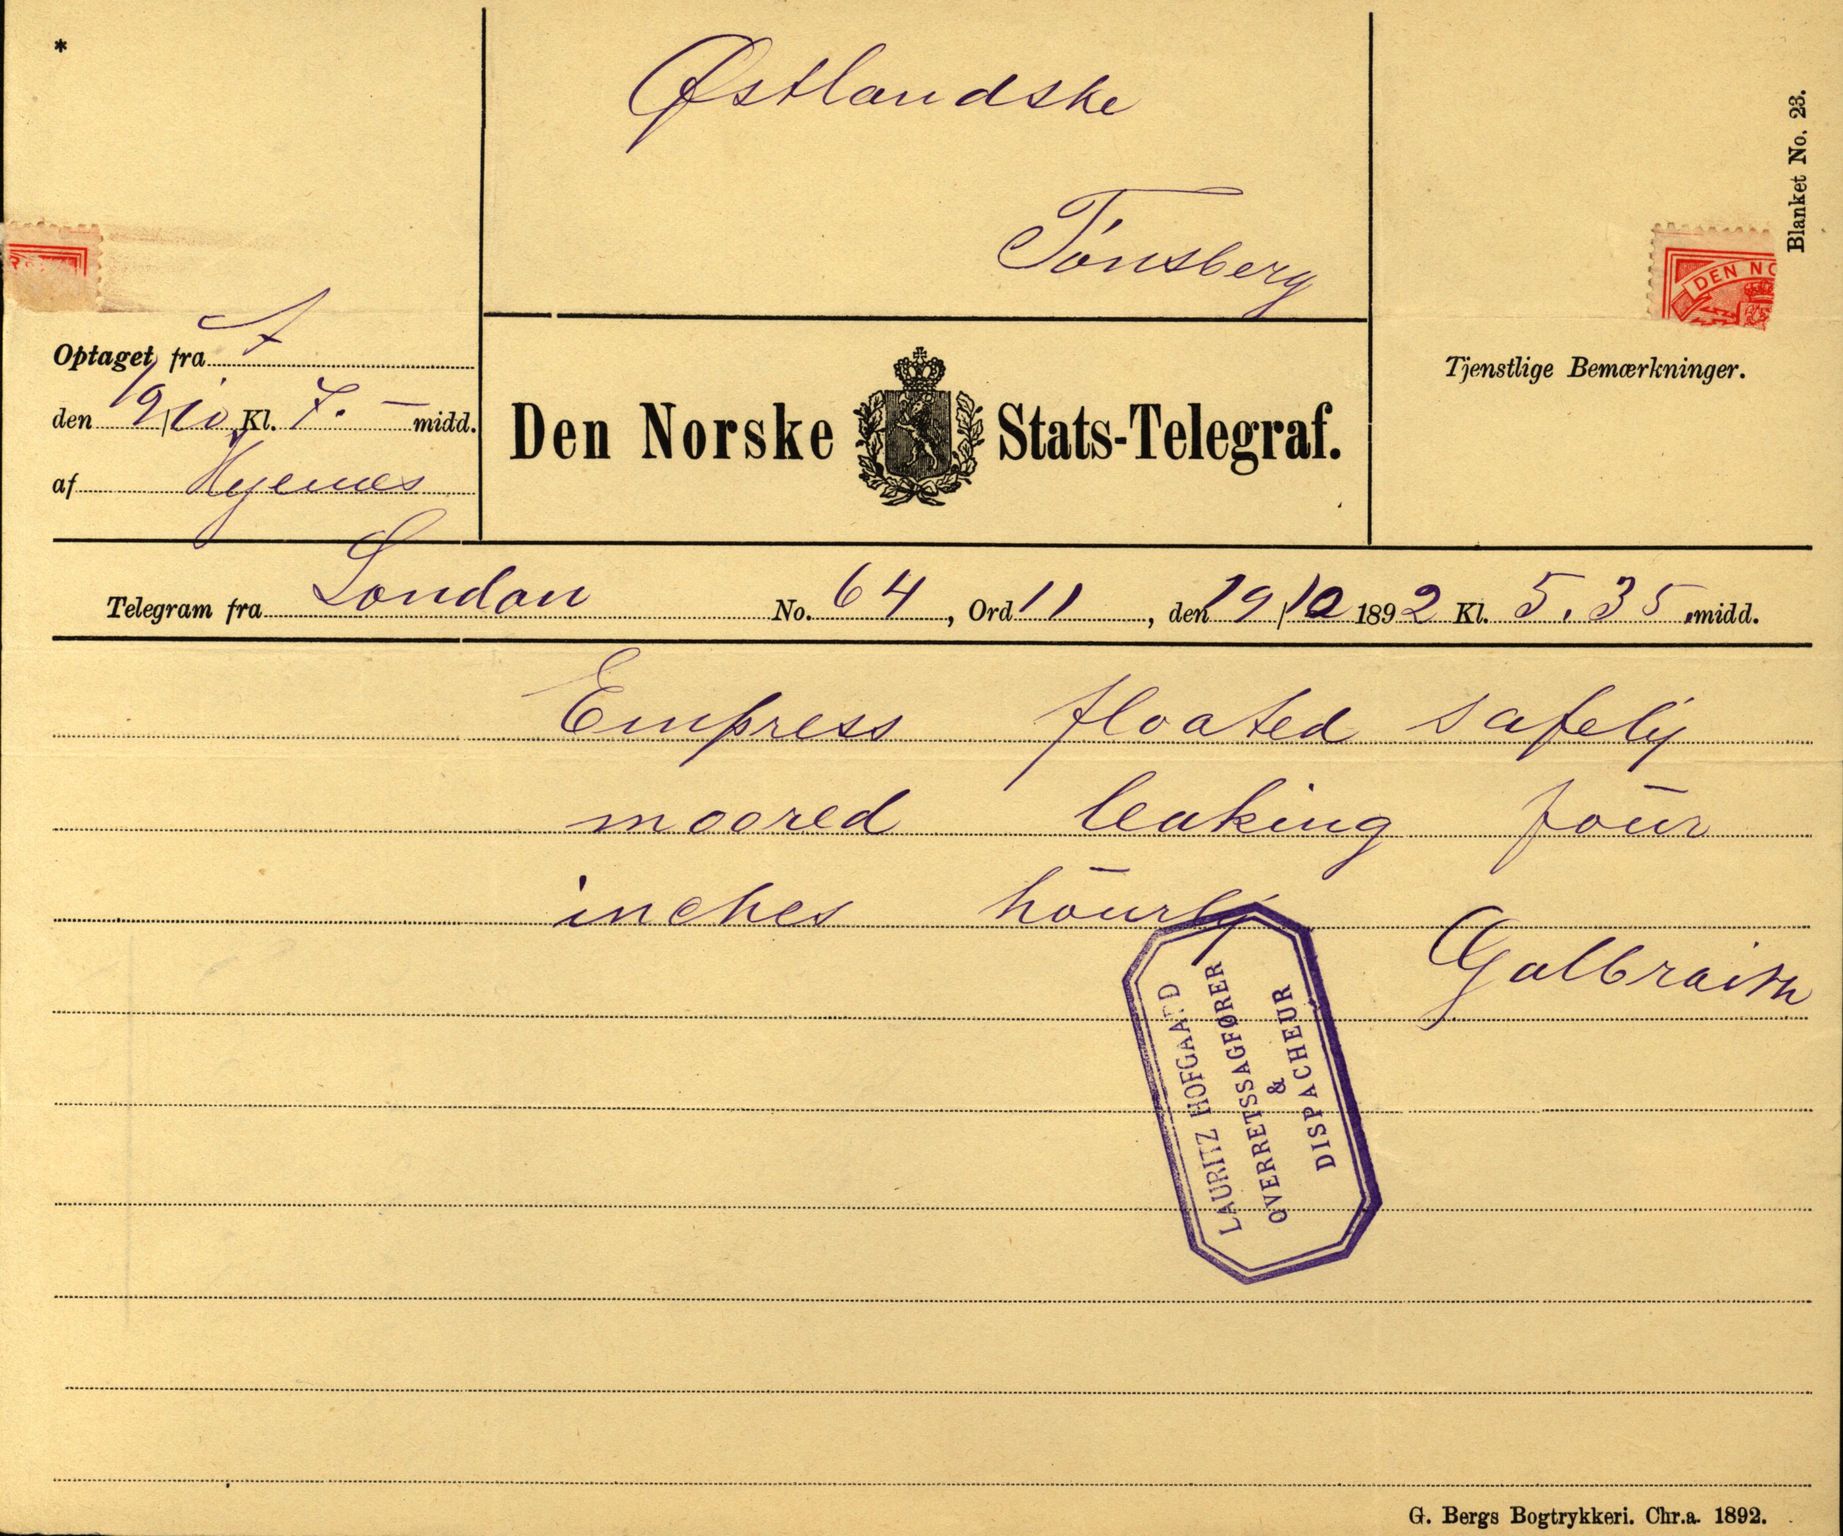 *
Østlandske
Tönsberg
Blanket No. 23.
DEN NO
Optaget fra A
den 19/10 Kl. 7. – midd.
af
Den Norske Stats-Telegraf.
Tjenstlige Bemærkninger.
Telegram fra London No. 64, Ord 11, den 19/10 1892 Kl. 5.35 midd.
Empress floated safely
moored leaking four
inches hourly
Galbraith
LAURITZ HOFGAARD
OVERRETSSAGFØRER
&
DISPACHEUR
G. Bergs Bogtrykkeri. Chr.a. 1892.